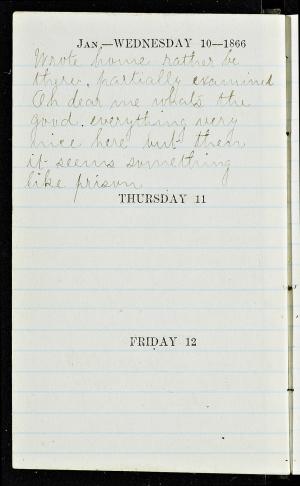 JAN.—WEDNESDAY 10—1866
Wrote home rather be
there. partially examined
Oh dear me whats the
good. everything very
nice here but then
it seems something
like prison
THURSDAY 11
FRIDAY 12